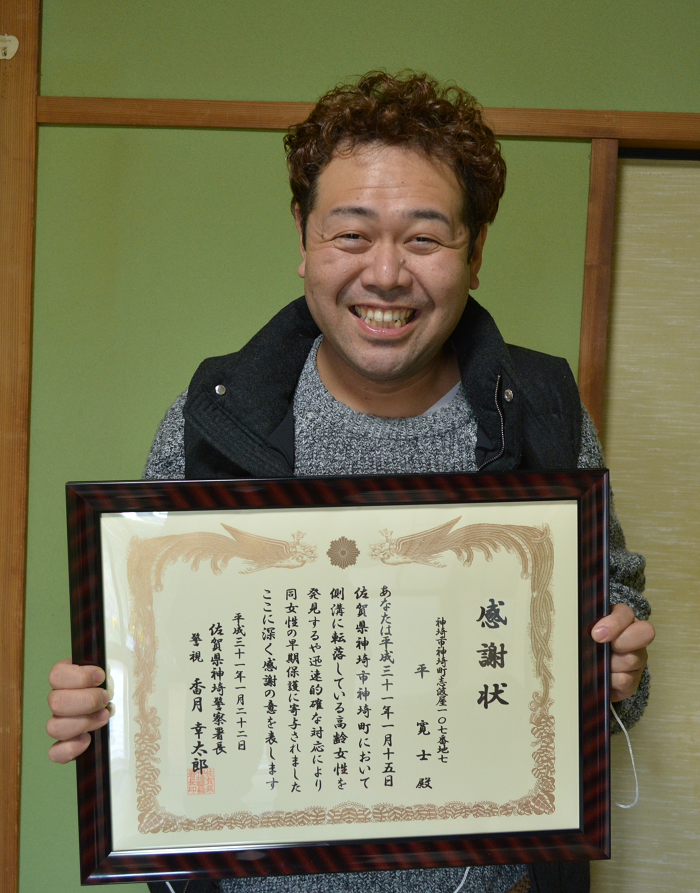 感謝状
神埼市神埼町志波屋一〇七番地七
平 寛士 殿
あなたは平成三十一年一月十五日
佐賀県神埼市神埼町において
側溝に転落している高齢女性を
発見するや迅速的確な対応により
同女性の早期保護に寄与されました
ここに深く感謝の意を表します
平成三十一年一月二十二日
佐賀県神埼警察署長
警視 香月 幸太郎